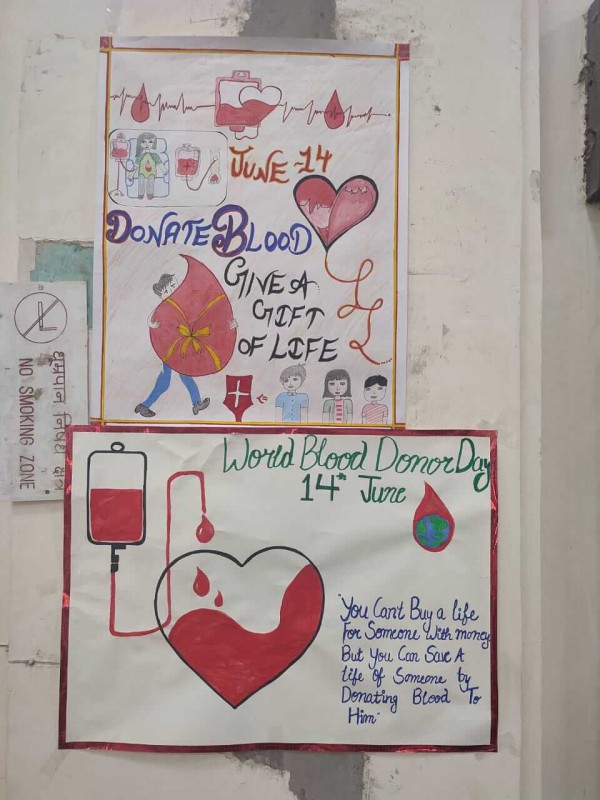 JUNE-14
DONATE BLOOD
GIVE A
GIFT
OF LIFE
धूम्रपान निषेध क्षेत्र
NO SMOKING ZONE
World Blood Donor Day
14th June
"You Can't Buy a life
For Someone With money
But You Can Save A
life Of Someone by
Donating Blood To
Him"